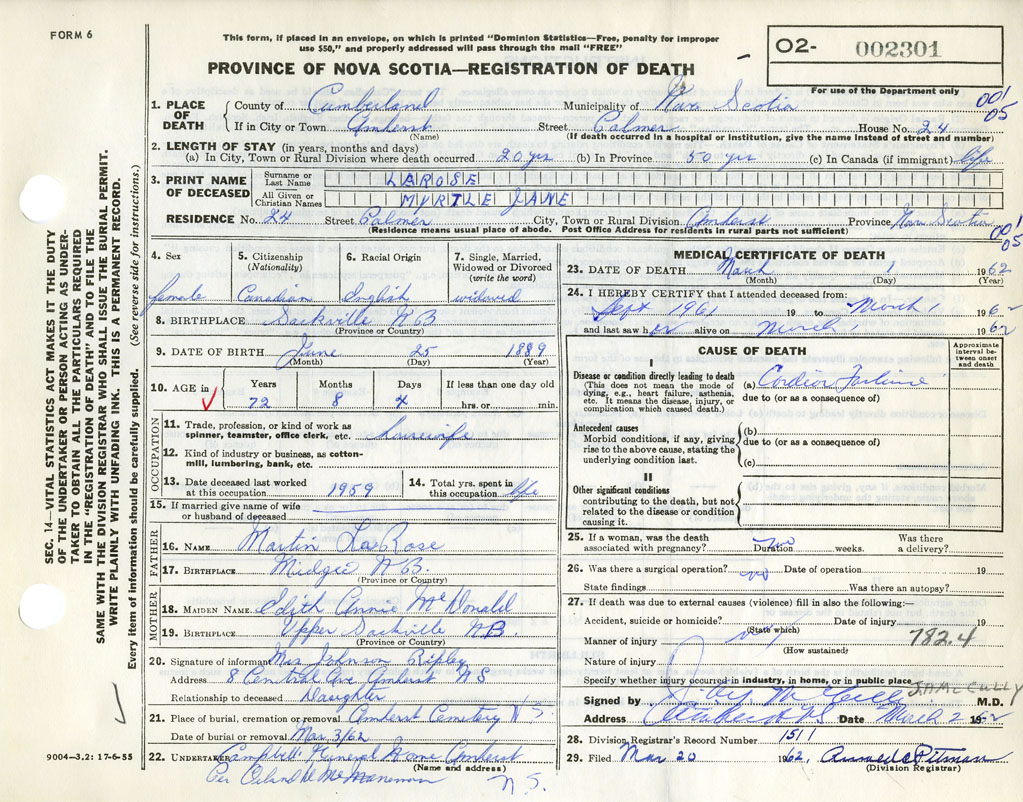 FORM 6
This form, if placed in an envelope, on which is printed "Dominion Statistics—Free, penalty for improper
use $50," and properly addressed will pass through the mail "FREE"
O2- 002301
PROVINCE OF NOVA SCOTIA—REGISTRATION OF DEATH
For use of the Department only
001
05
1. PLACE OF DEATH County of Cumberland Municipality of Nova Scotia
If in City or Town Amherst Street Palmer House No. 24
(Name) (If death occurred in a hospital or institution, give the name instead of street and number)
2. LENGTH OF STAY (in years, months and days)
(a) In City, Town or Rural Division where death occurred 20 yrs (b) In Province 50 yrs (c) In Canada (if immigrant) life
3. PRINT NAME OF DECEASED Surname or Last Name LAROSE
All Given or Christian Names MYRTLE JANE
RESIDENCE No. 24 Street Palmer City, Town or Rural Division Amherst Province Nova Scotia
(Residence means usual place of abode. Post Office Address for residents in rural parts not sufficient)
001
05
4. Sex female
5. Citizenship (Nationality) Canadian
6. Racial Origin English
7. Single, Married, Widowed or Divorced (write the word) widowed
8. BIRTHPLACE Sackville N B
(Province or Country)
9. DATE OF BIRTH June 25 1889
(Month) (Day) (Year)
10. AGE in Years Months Days If less than one day old
72 8 4 hrs. or min.
OCCUPATION
11. Trade, profession, or kind of work as spinner, teamster, office clerk, etc. housewife
12. Kind of industry or business, as cotton-mill, lumbering, bank, etc.
13. Date deceased last worked at this occupation 1959
14. Total yrs. spent in this occupation life
15. If married give name of wife or husband of deceased
FATHER
16. NAME Martin LaRose
17. BIRTHPLACE Midgic N.B.
(Province or Country)
MOTHER
18. MAIDEN NAME Edith Annie McDonald
19. BIRTHPLACE Upper Sackville N.B.
(Province or Country)
20. Signature of informant Mrs Johnson Ripley
Address 8 Central Ave Amherst N S
Relationship to deceased Daughter
21. Place of burial, cremation or removal Amherst Cemetery N S
Date of burial or removal Mar 3/62
22. UNDERTAKER Campbell Funeral Home Amherst
(Name and address)
N.S.
MEDICAL CERTIFICATE OF DEATH
23. DATE OF DEATH March 1 1962
(Month) (Day) (Year)
24. I HEREBY CERTIFY that I attended deceased from:
Sept 1961 19 to March 1 196
and last saw her alive on March 1 1962
CAUSE OF DEATH
Approximate interval between onset and death
I
Disease or condition directly leading to death
(This does not mean the mode of dying, e.g., heart failure, asthenia, etc. It means the disease, injury, or complication which caused death.)
(a) Cardiac Failure
due to (or as a consequence of)
Antecedent causes
Morbid conditions, if any, giving rise to the above cause, stating the underlying condition last.
(b)
due to (or as a consequence of)
(c)
II
Other significant conditions
contributing to the death, but not related to the disease or condition causing it.
25. If a woman, was the death associated with pregnancy? no Duration weeks. Was there a delivery?
26. Was there a surgical operation? no Date of operation 19
State findings Was there an autopsy?
27. If death was due to external causes (violence) fill in also the following:—
Accident, suicide or homicide? Date of injury 19
(State which)
Manner of injury 782.4
(How sustained)
Nature of injury
Specify whether injury occurred in industry, in home, or in public place
J.A McCULLY
Signed by McCully M.D.
Address Amherst NS Date March 2 1962
28. Division Registrar's Record Number 1511
29. Filed Mar 20 1962, Pitman
(Division Registrar)
9004—3.2: 17-6-55
SEC. 14—VITAL STATISTICS ACT MAKES IT THE DUTY
OF THE UNDERTAKER OR PERSON ACTING AS UNDER-
TAKER TO OBTAIN ALL THE PARTICULARS REQUIRED
IN THE "REGISTRATION OF DEATH" AND TO FILE THE
SAME WITH THE DIVISION REGISTRAR WHO SHALL ISSUE THE BURIAL PERMIT.
WRITE PLAINLY WITH UNFADING INK. THIS IS A PERMANENT RECORD.
Every item of information should be carefully supplied. (See reverse side for instructions.)